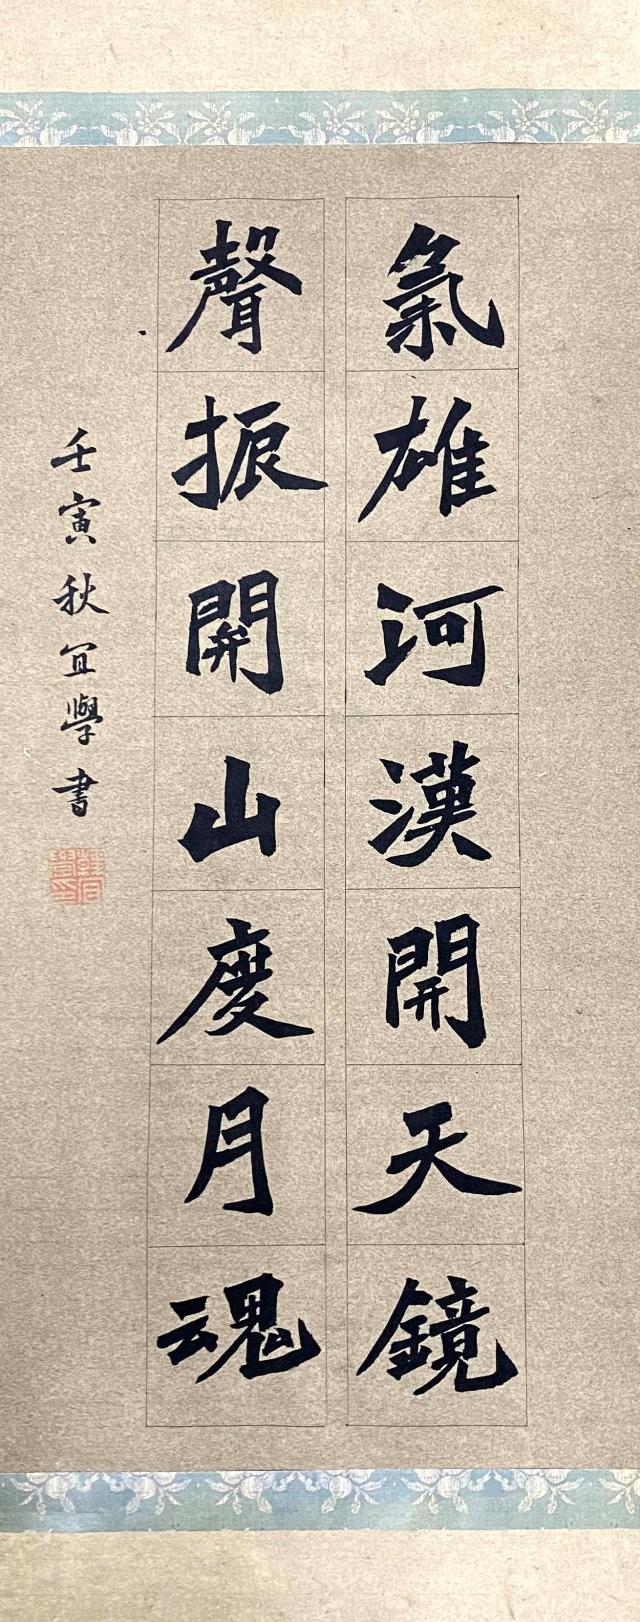 氣雄河漢開天鏡
聲振關山慶月魂
壬寅秋宜學書